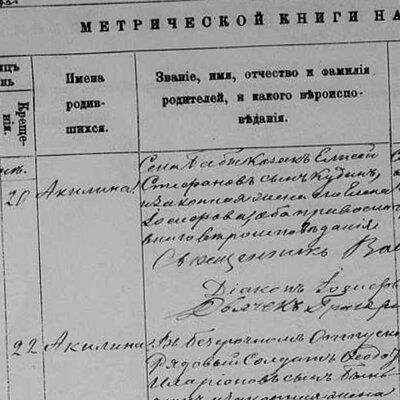 МЕТРИЧЕСКОЙ КНИГИ НА
Креще-
нія.
Имена
родив-
шихся.
Званіе, имя, отчество и фамилія
родителей, и какого вѣроиспо-
вѣданія.
20
Акилина
Села Бабы Козакъ Елисей
Стефановъ сынъ
и законная жена его Елена
оба православ
наго вѣроисповѣданія
Священникъ Вас
Діаконъ Іосифъ
22
Акилина
Въ безсрочномъ отпуску
Рядовый Солдатъ Ѳеодо
Иларіоновъ сынъ
жена